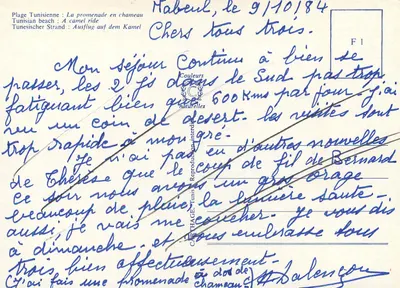 Plage Tunisienne : La promenade en chameau
Tunisian beach : A camel ride
Tunesischer Strand : Ausflug auf dem Kamel
Nabeul, le 9/10/84
Chers tous trois.
F 1
Mon séjour continu à bien se
passer, les 2 js dans le Sud pas trop
fatiguant bien que 600 Kms par jour. j'ai
vu un coin de désert. les visites sont
trop rapide à mon gré.
Je n'ai pas eu d'autres nouvelles
de Thérèse que le coup de fil de Bernard
Ce soir nous avons un gros orage
beaucoup de pluie, la lumière saute
aussi, je vais me coucher. Je vous dis
à dimanche. et vous embrasse tous
trois, bien affectueusement.
(j'ai fais une promenade à dos de
chameau)
Couleurs
CARTHAGE